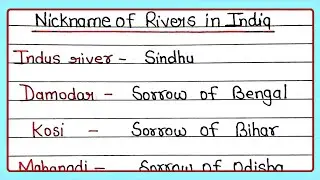 Nickname of Rivers in Indiq
Indus river - Sindhu
Damodar - Sorrow of Bengal
Kosi - Sorrow of Bihar
Mahanadi - Sorrow of Odisha